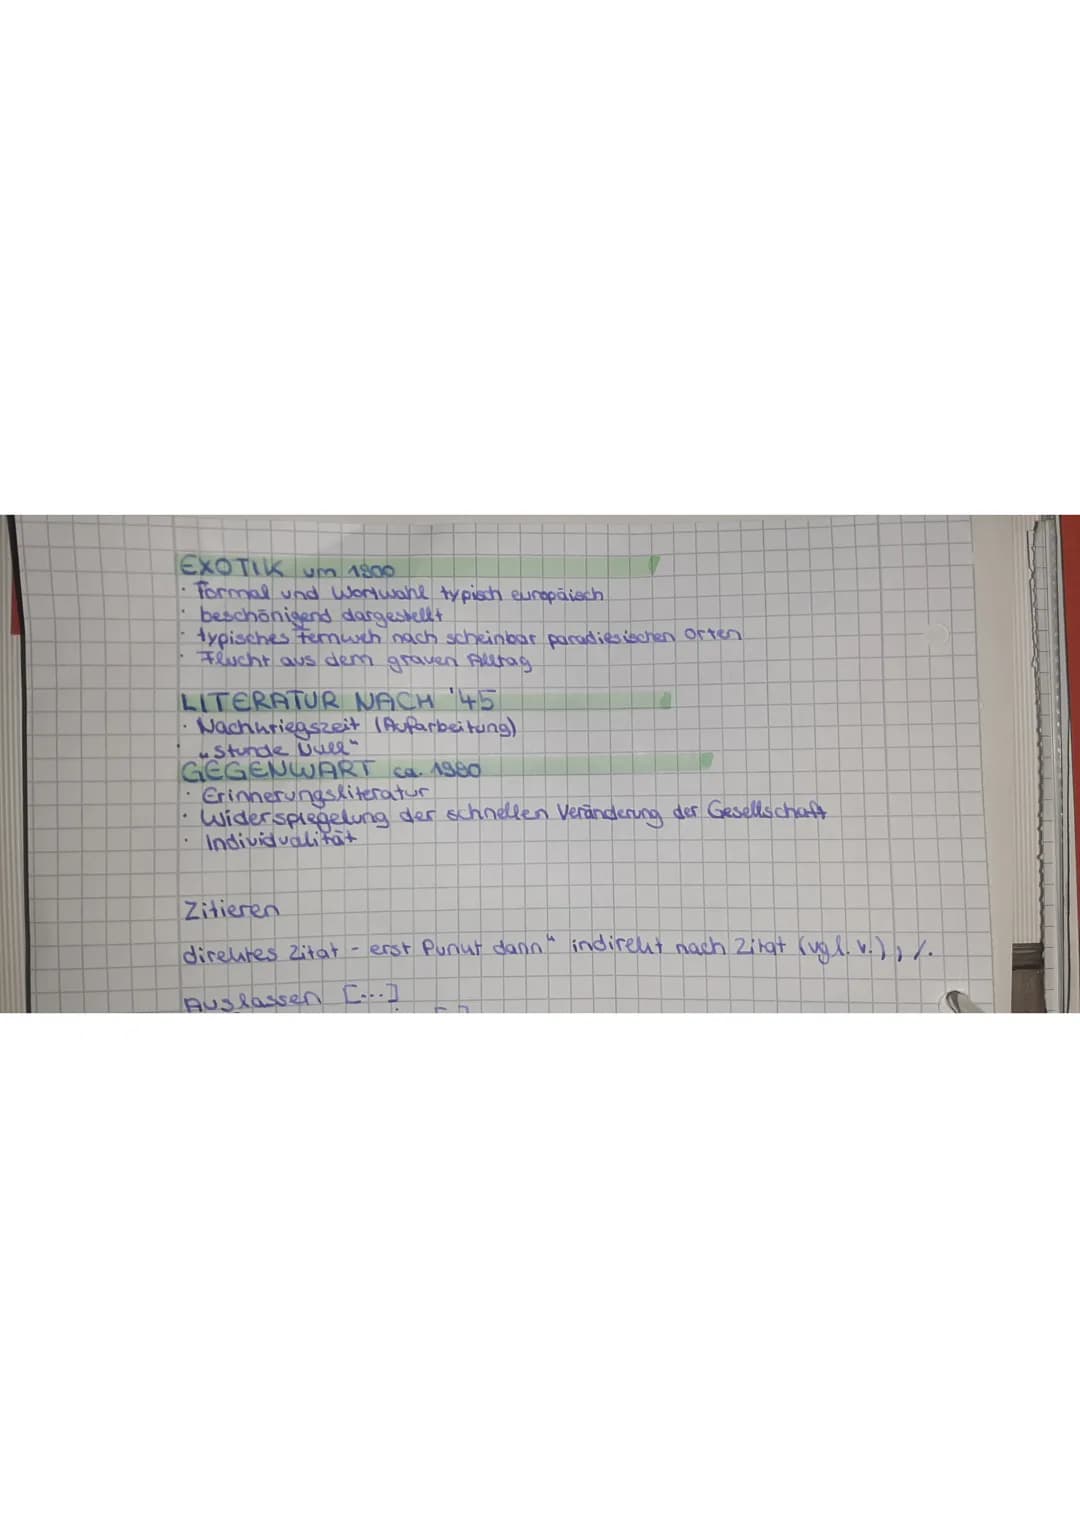 EXOTIK um 1900
· Formal und Wortwahl typisch europäisch
· beschönigend dargestellt
· typisches Fernweh nach scheinbar paradiesischen Orten
· Flucht aus dem grauen Alltag
LITERATUR NACH '45
· Nachkriegszeit (Aufarbeitung)
· „Stunde Null“
GEGENWART ca. 1980
· Erinnerungsliteratur
· Widerspiegelung der schnellen Veränderung der Gesellschaft
· Individualität
Zitieren
direktes Zitat - erst Punkt dann “ indirekt nach Zitat (vgl. v.),
Auslassen [...]